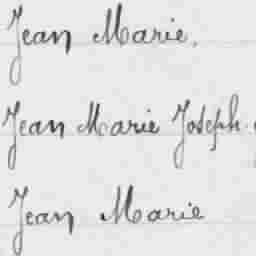 Jean Marie.
Jean Marie Joseph
Jean Marie